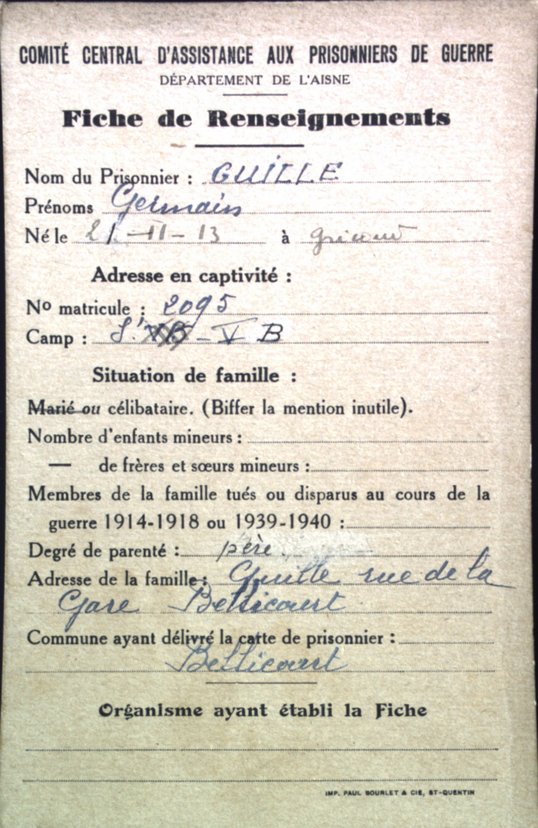 COMITÉ CENTRAL D'ASSISTANCE AUX PRISONNIERS DE GUERRE
DÉPARTEMENT DE L'AISNE
Fiche de Renseignements
Nom du Prisonnier : GUILLE
Prénoms Germain
Né le 21-11-13 à
Adresse en captivité :
No matricule : 2095
Camp : V B
Situation de famille :
Marié ou célibataire. (Biffer la mention inutile).
Nombre d'enfants mineurs :
— de frères et sœurs mineurs :
Membres de la famille tués ou disparus au cours de la
guerre 1914-1918 ou 1939-1940 :
Degré de parenté : père.
Adresse de la famille : Guille rue de la
Gare Bellicourt
Commune ayant délivré la carte de prisonnier :
Bellicourt
Organisme ayant établi la Fiche
IMP. PAUL BOURLET & CIE, ST-QUENTIN